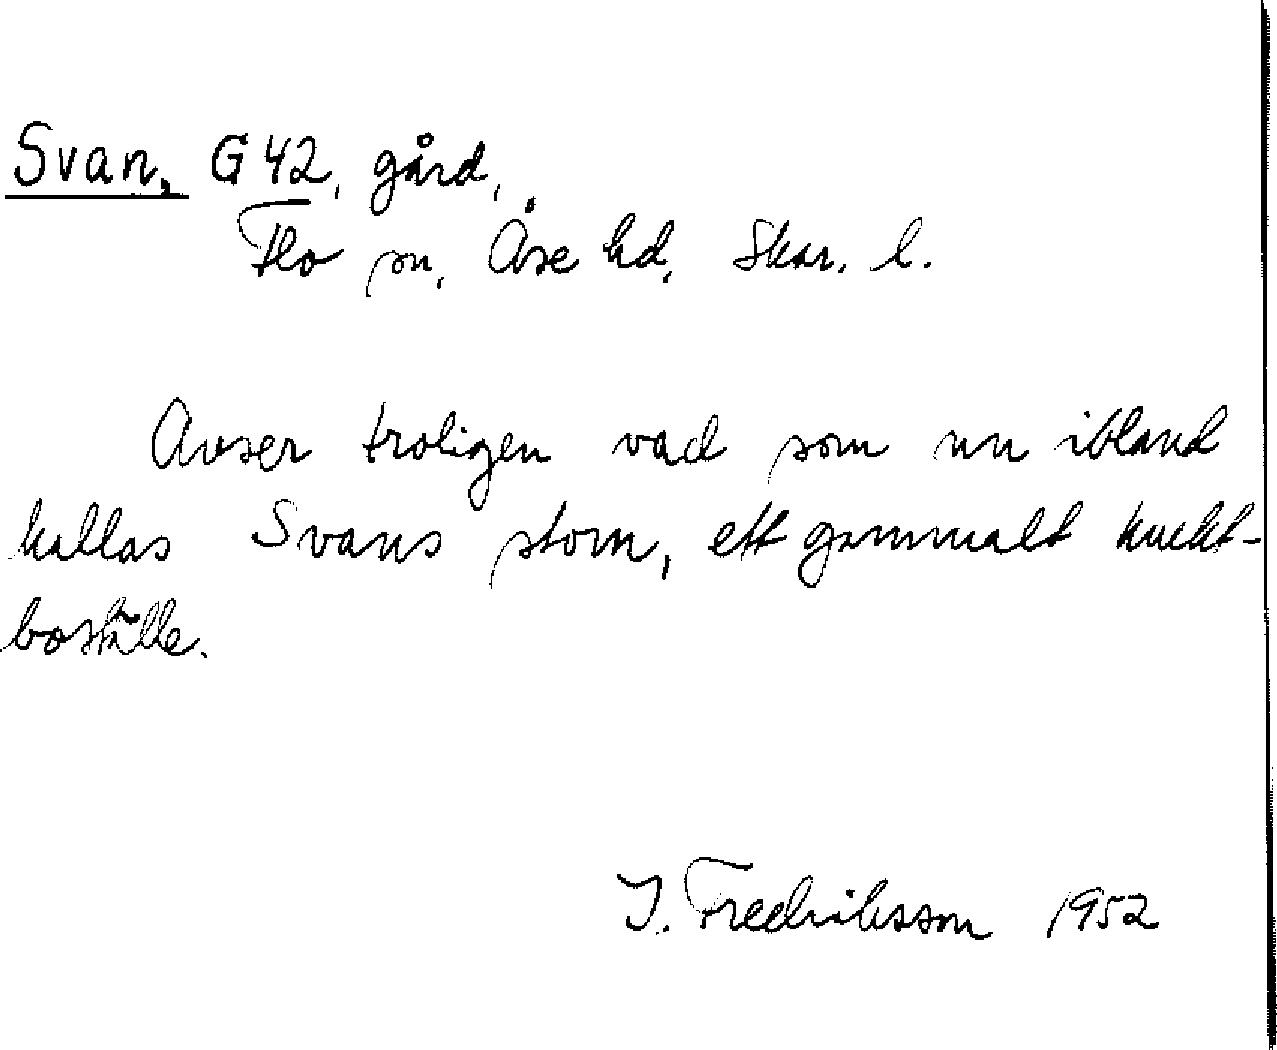 Svan, G 42, gård,
Flo sn, Åse hd, Skar. l.
Avser troligen vad som nu ibland
kallas Svans stom, ett gammalt knekt-
boställe.
I. Fredriksson 1952